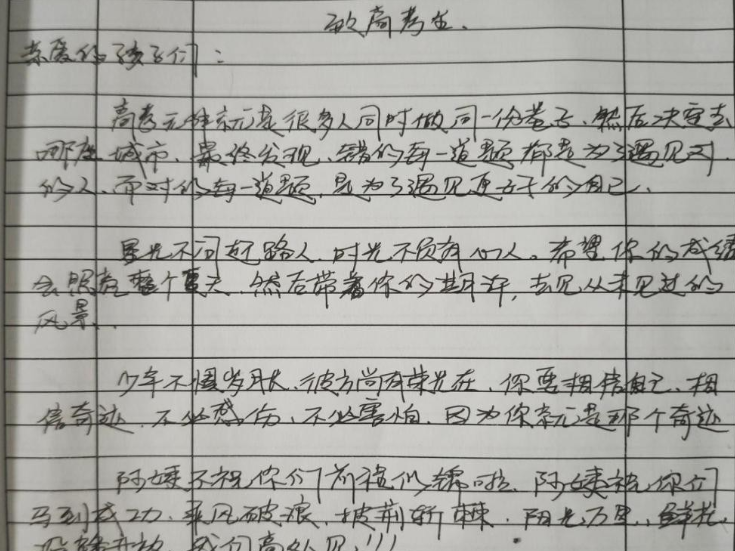 致高考生.
亲爱的孩子们：
高考无非就是很多人同时做同一份卷子、然后决定去
哪座城市、最终发现、错的每一道题都是为了遇见对
的人、而对的每一道题、是为了遇见更好的自己、
星光不问赶路人、时光不负有心人。希望你的成绩
会照亮整个夏天、然后带着你的期许，去见从未见过的
风景.
少年不惧岁月长、彼方尚有荣光在、你要相信自己、相
信奇迹、不必感伤、不必害怕、因为你就是那个奇迹
阿姨不祝你们前程似锦啦、阿姨祝你们
马到成功、乘风破浪、披荆斩棘、阳光万里、鲜花
沿路开放、我们高处见!!!